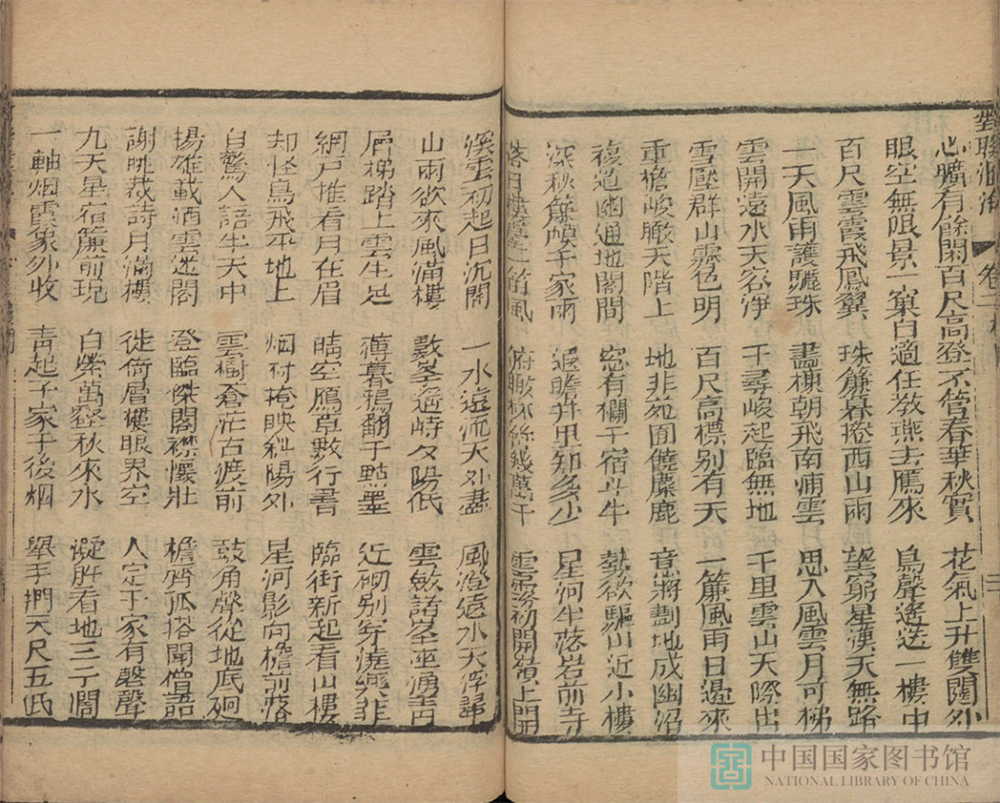 對聯
卷二
心曠有餘閑百尺高登不管春華秋實 花氣上升雙闕外
眼空無限景一窠自適任教燕去鴈來 鳥聲遙送一樓中
百尺雲霞飛鳳翼 珠簾暮捲西山雨 望窮星漢天無路
一天風雨護驪珠 畫棟朝飛南浦雲 思入風雲月可梯
雲開遠水天容淨 千尋峻起臨無地 千里雲山天際出
雪壓群山霽色明 百尺高標別有天 一簾風雨日邊來
重檐峻瞰天階上 地非苑囿饒麋鹿 意將劃地成幽沼
複道幽通地閣間 窓有欄干宿斗牛 勢欲驅山近小樓
深秋簾幙千家雨 遐瞻井里知多少 星河半落岩前寺
落日樓臺一笛風 俯瞰林絲幾萬千 雲霧初開嶺上關
溪雲初起日沉閣 一水遠流天外盡 風澄遠水天浮
山雨欲來風滿樓 數峯遙峙夕陽低 雲斂諸峯
屑梯踏上雲生足 薄暮鴉翻千點墨 近砌別穿澆藥井
網戶推看月在眉 晴空鴈草數行書 臨街新起看山樓
却怪鳥飛平地上 烟村掩映斜陽外 星河影向檐前落
自驚人語半天中 雲樹蒼茫古渡前 鼓角聲從地底迴
揚雄載酒雲迷閣 登臨傑閣襟懷壯 檐齊孤塔聞僧語
謝眺裁詩月滿樓 徙倚層樓眼界空 人定千家有磬聲
九天星宿簾前現 白紫萬壑秋來水 凝眸看地三千闊
一軸烟霞象外收 青起千家子後烟 舉手捫天尺五低
中国国家图书馆
NATIONAL LIBRARY OF CHINA